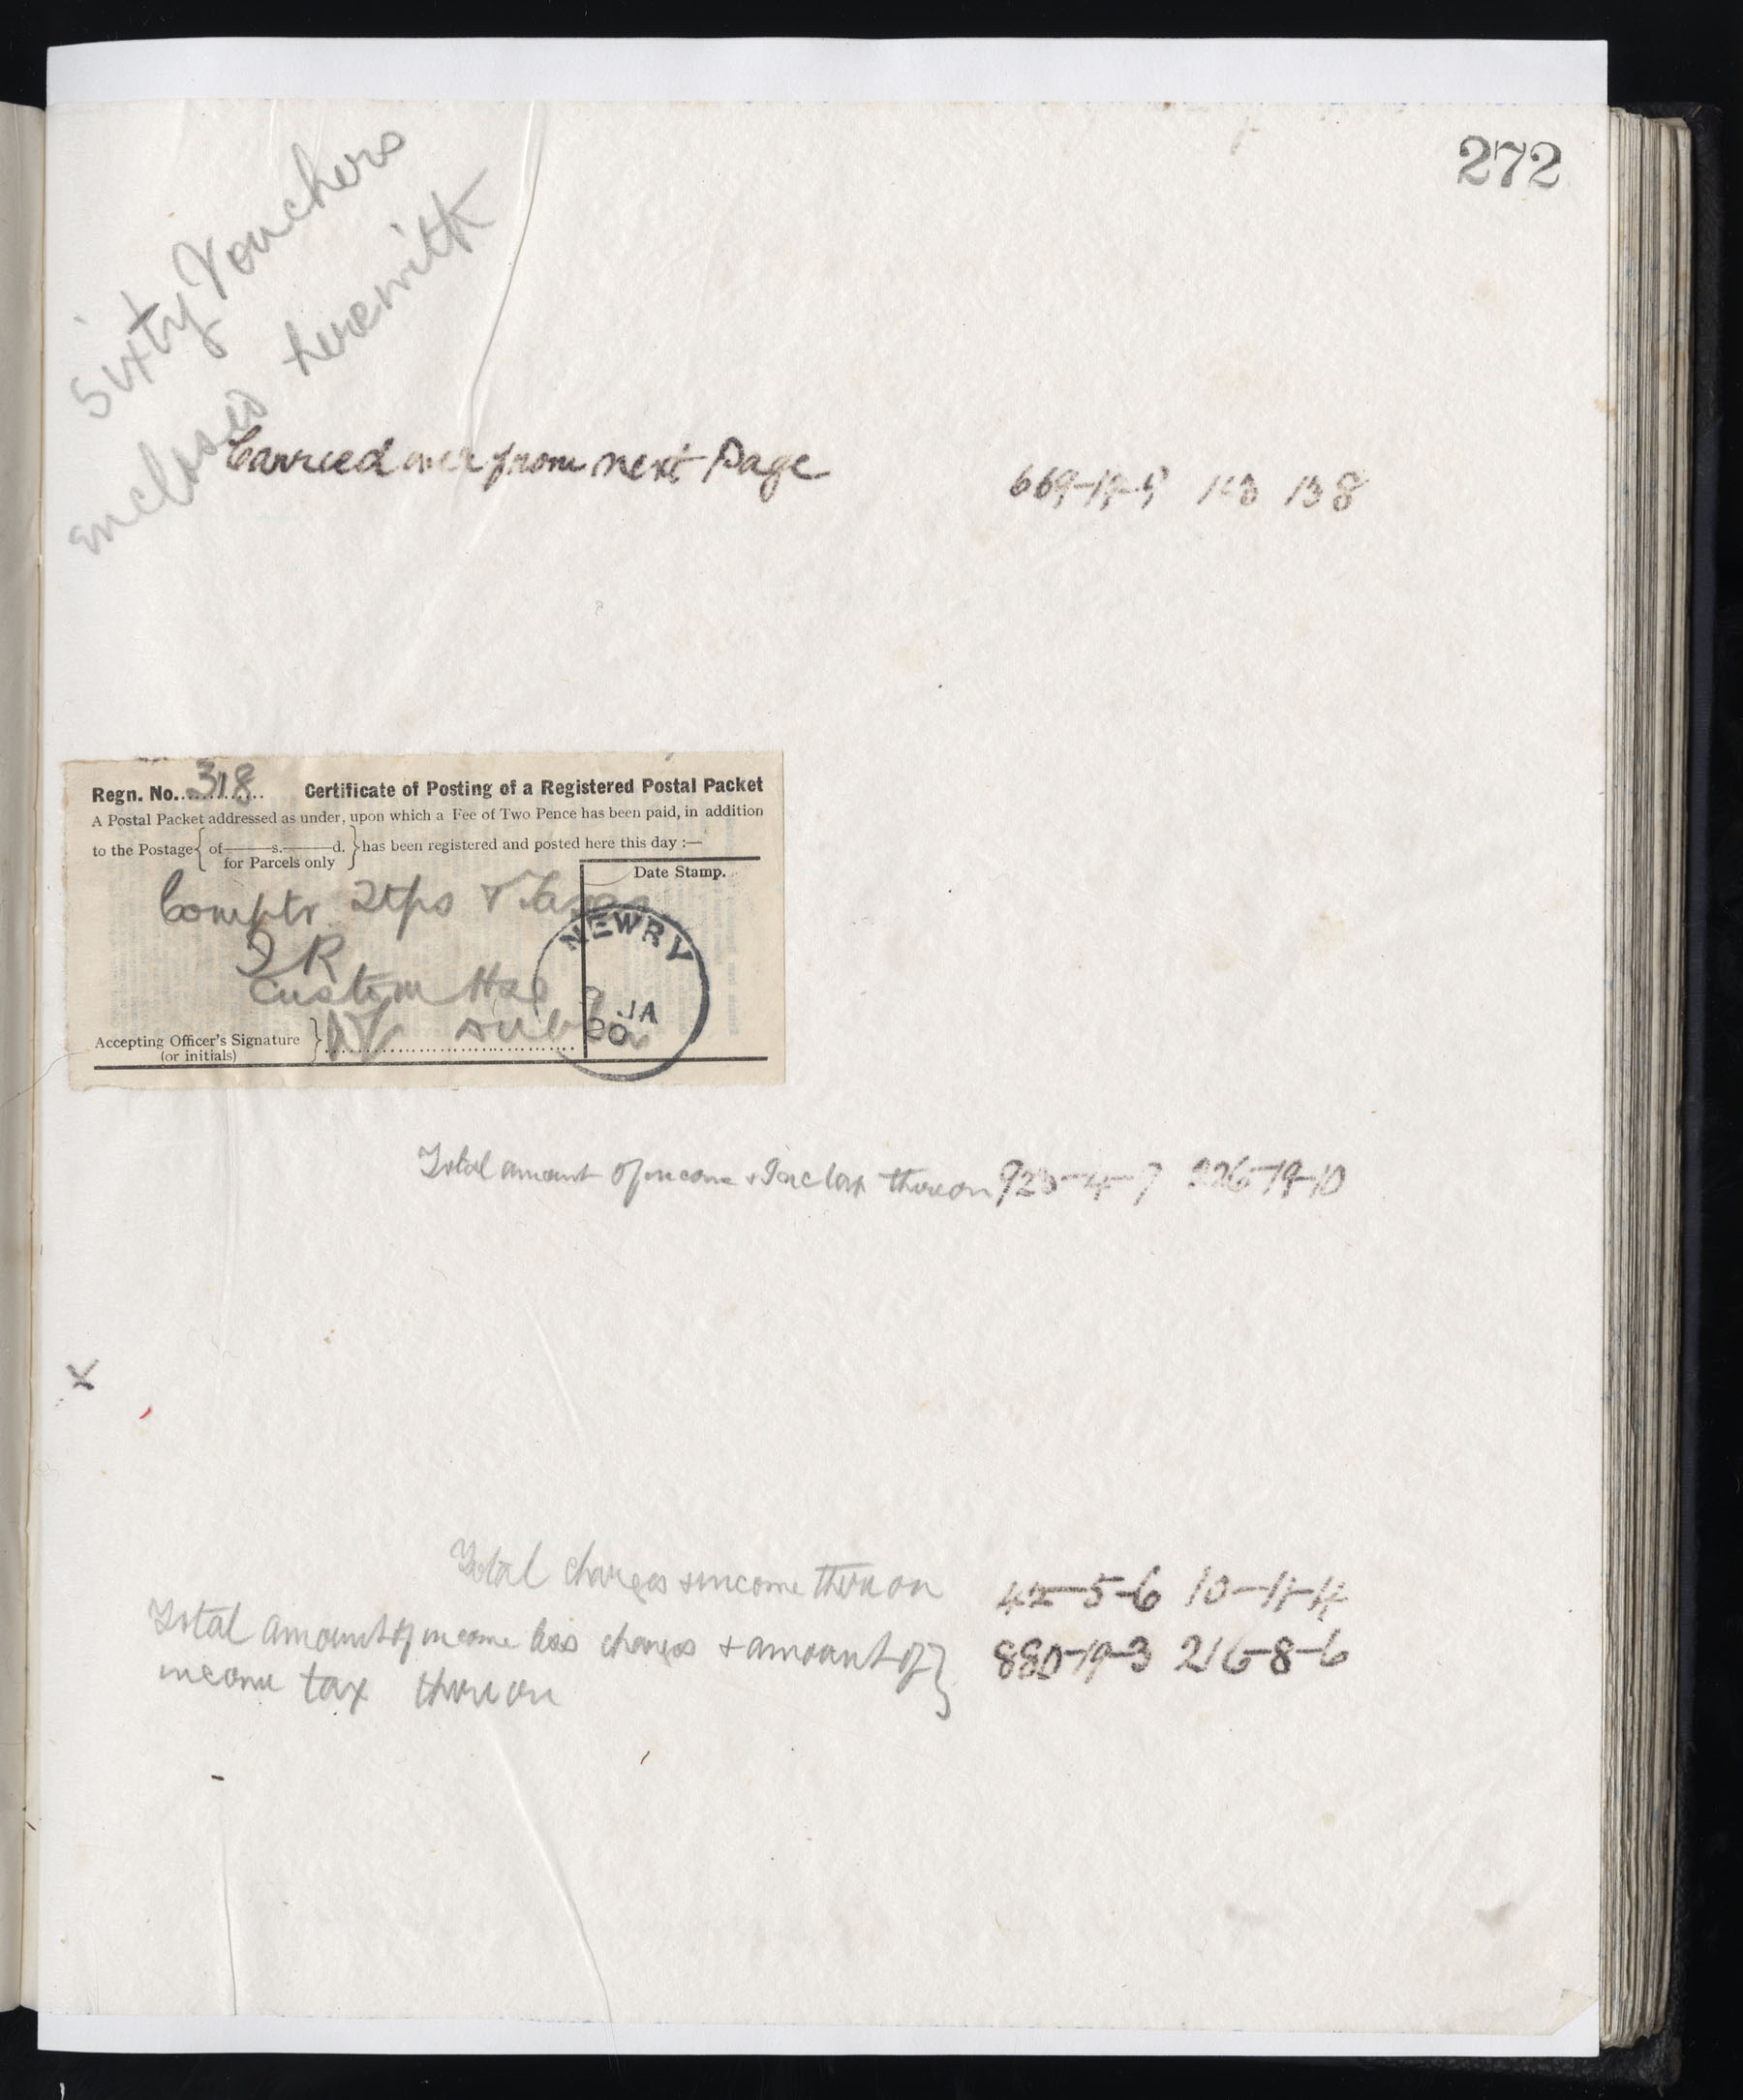 272
Sixty Vouchers
enclosed herewith
Carried over from next Page 669-19-5 13 8
Regn. No. 318 Certificate of Posting of a Registered Postal Packet
A Postal Packet addressed as under, upon which a Fee of Two Pence has been paid, in addition
to the Postage { of s. d. } has been registered and posted here this day :—
for Parcels only
Date Stamp.
Comptr Stps & Taxes
I R
Custom Hse
Dublin
NEWRY
JA
20
Accepting Officer's Signature
(or initials)
Total amount of income & Inc tax thereon 923-4-9 226-19-10
x
Total charges & income thereon 42-5-6 10-11-4
Total amount of income less charges & amount of } 880-19-3 216-8-6
income tax thereon